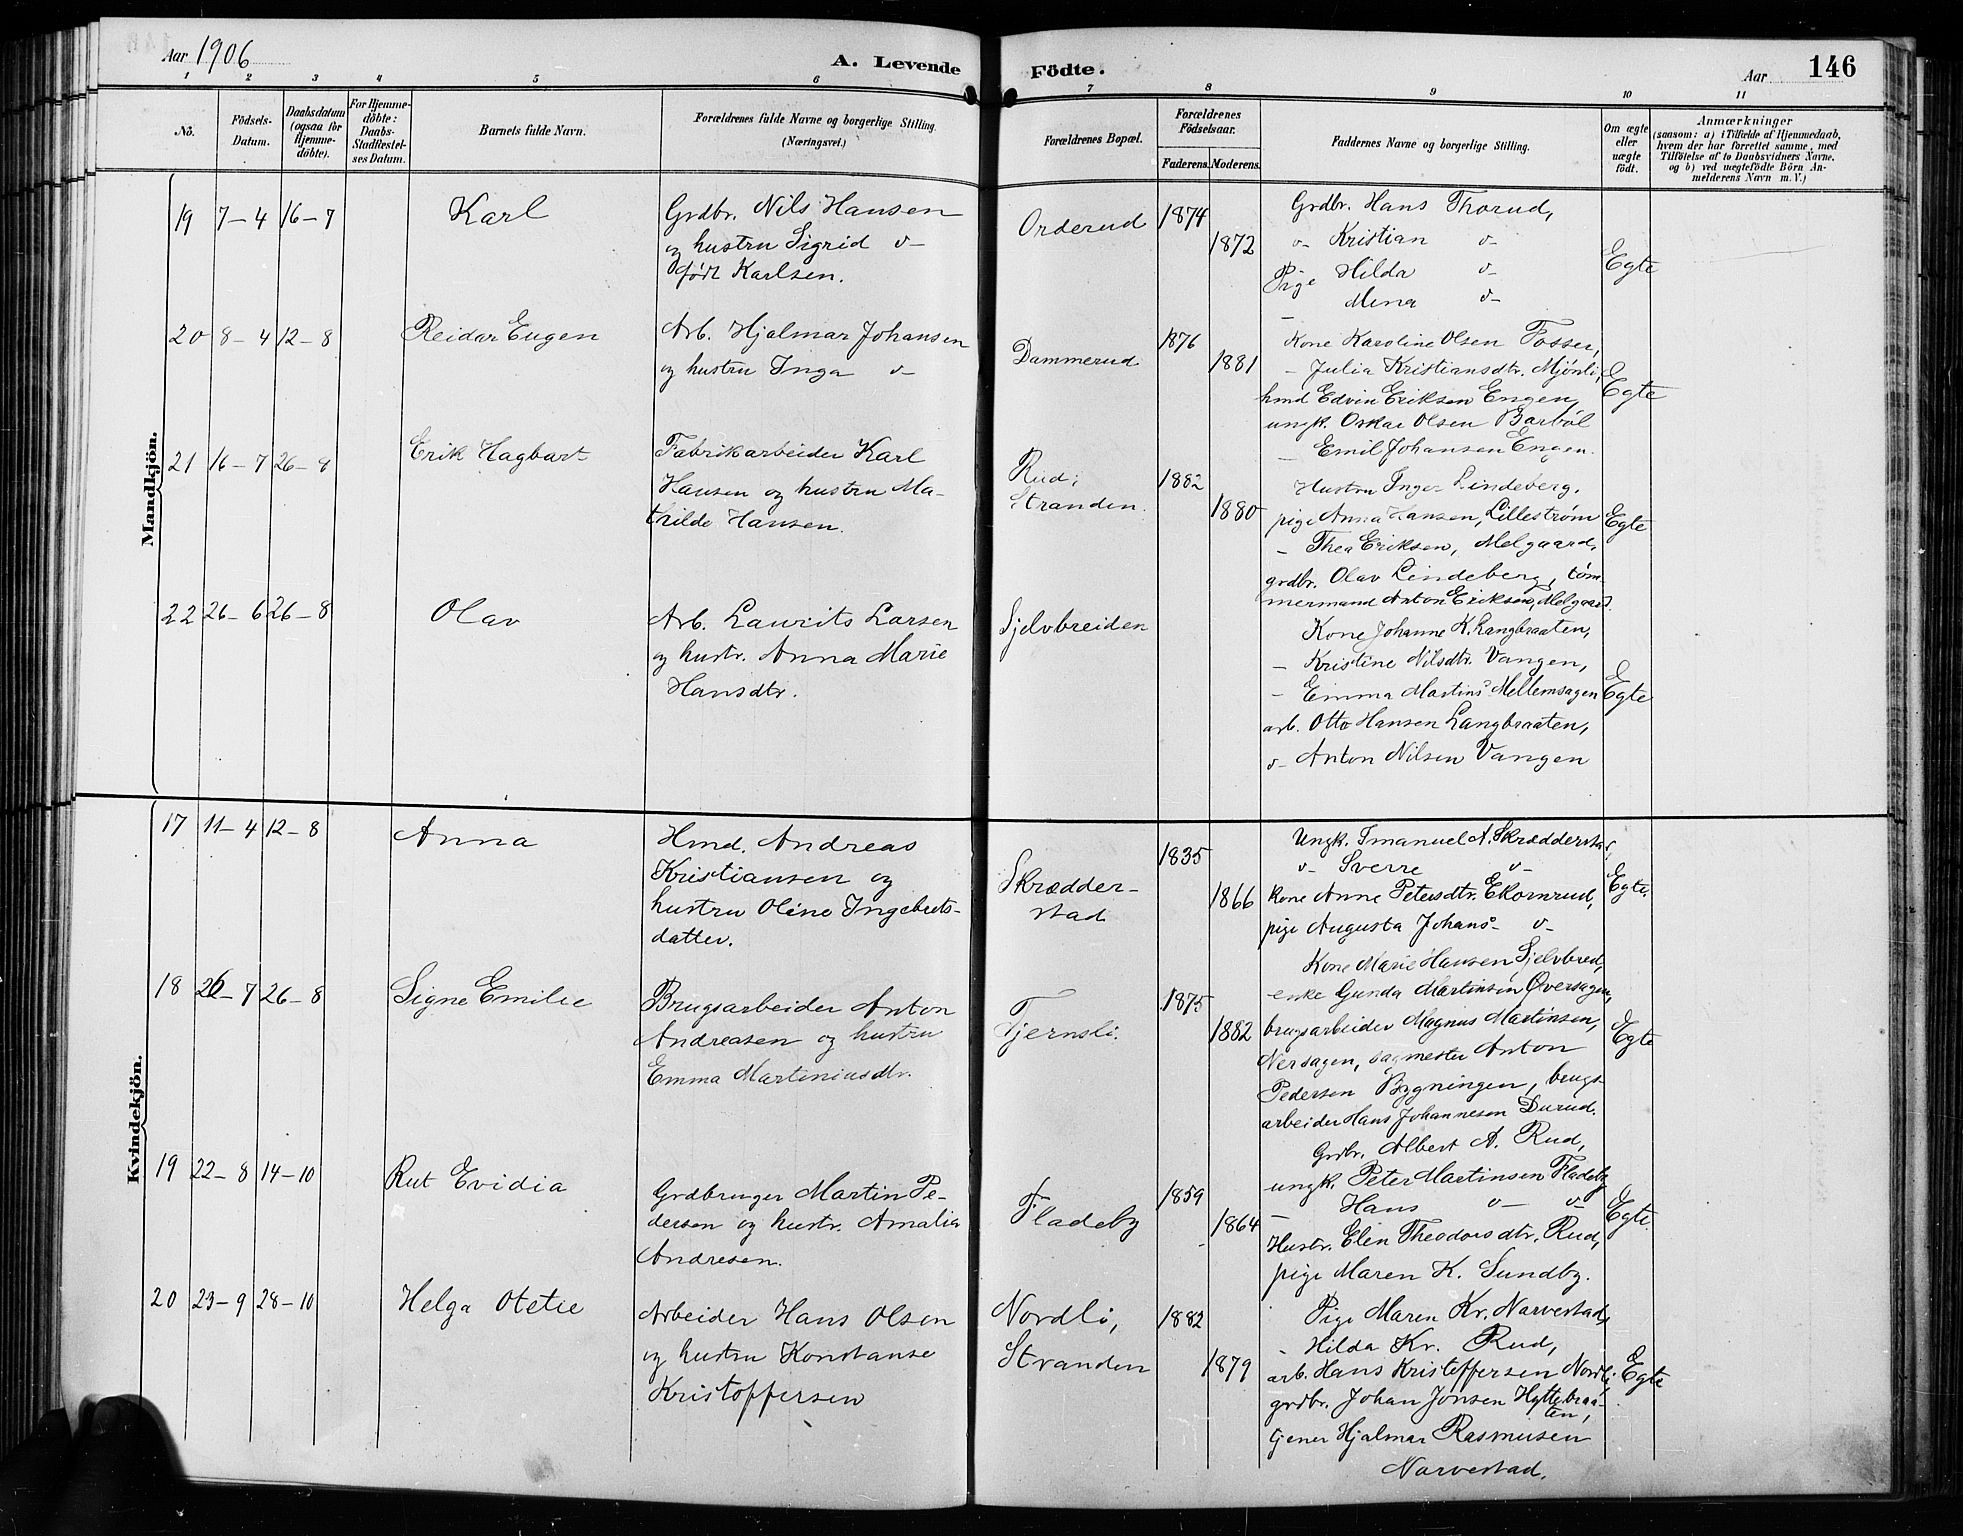 Aar 1906
A. Levende Födte.
Aar 146
1 2 3 4 5 6 7 8 9 10 11
Nô.
Födsels-
Datum.
Daabsdatum
(ogsaa for
Hjemme-
döbte).
For Hjemme-
döbte:
Daabs-
Stadfestel-
ses Datum.
Barnets fulde Navn.
Forældrenes fulde Navne og borgerlige Stilling.
(Næringsvei.)
Forældrenes Bopæl.
Forældrenes
Födselsaar.
Faderens. Moderens.
Faddernes Navne og borgerlige Stilling.
Om ægte
eller
uægte
födt.
Anmærkninger
(saasom: a) i Tilfælde af Hjemmedaab,
hvem der har forrettet samme, med
Tilföielse af to Daabsvidners Navne,
og b) ved uægtefödte Börn An-
melderens Navn m. V.)
Mandkjön.
19 7-4 16-7 Karl
Grdbr. Nils Hansen
og hustru Sigrid v-
født Karlsen.
Orderud 1874
1872
Grdbr. Hans Thorud,
v- Kristian v-
Pige Hilda v-
- Mina v-
Egte
20 8-4 12-8 Reidar Eugen
Arb. Hjalmar Johansen
og hustru Inga v-
Dammerud 1876
1881
Kone Karoline Olsen Fosser,
- Julia Kristiansdtr. Mjønli,
hmd Edvin Eriksen Engen,
ungk. Oskar Olsen Barbøl
- Emil Johansen Engen.
Egte
21 16-7 26-8 Erik Hagbart
Fabrikarbeider Karl
Hansen og hustru Ma-
thilde Hansen.
Rud i
Stranden. 1882
1880
Hustru Inga Lindeberg,
pige Anna Hansen, Lillestrøm
- Thea Eriksen, Melgaard,
grdbr. Olav Lindeberg, tøm-
mermand Anton Eriksen, Melgaard.
Egte
22 26-6 26-8 Olav
Arb. Laurits Larsen
og hustr. Anna Marie
Hansdtr.
Sjelvbreiden
Kone Johanne K. Langbraaten,
- Kristine Nilsdtr. Vangen,
- Emma Martins Mellemsagen
arb. Otto Hansen Langbraaten,
v- Anton Nilsen Vangen
Egte
Kvindekjön.
17 11-4 12-8 Anna
Hmd. Andreas
Kristiansen og
hustru Oline Ingeberts-
datter.
Skrædder-
stad 1835
1866
Ungk. Imanuel A. Skrædderstad,
v- Sverre v-
Kone Anne Petersdtr. Ekornrud,
pige Augusta Johans- v-
Egte.
18 26-7 26-8 Signe Emilie
Brugsarbeider Anton
Andreasen og hustru
Emma Martiniusdtr.
Tjernsli. 1875
1882
Kone Marie Hansen Sjelvbred,
enke Gunda Martinsen Øversagen,
brugsarbeider Magnus Martinsen,
Nersagen, sagmester Anton
Pedersen Bygningen, brugs-
arbeider Hans Johannesen Durud.
Egte
19 22-8 14-10 Rut Evidia
Grdbruger Martin Pe-
dersen og hustr. Amalia
Andresen.
Fladeby 1859
1864
Grdbr. Albert A. Rud,
ungk. Peter Martinsen Fladeby
- Hans v- v-
Hustr. Elen Theodorsdtr. Rud,
pige Maren K. Sundby.
Egte.
20 23-9 28-10 Helga Otetie
Arbeider Hans Olsen
og hustru Konstanse
Kristoffersen
Nordli,
Stranden 1882
1879
Pige Maren Kr. Narvestad,
- Hilda Kr. Rud,
arb. Hans Kristoffersen Nordli,
grdbr. Johan Jonsen Hyttebraa-
ten,
tjener Hjalmar Rasmusen
Narvestad.
Egte